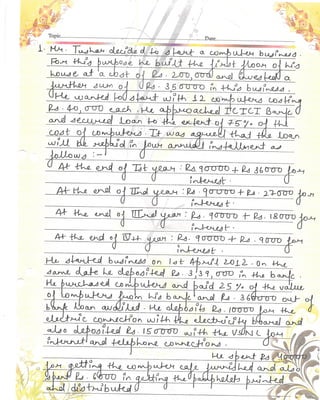 Topic Date
1. Mr. Tushar decided to start a computer business.
For this purpose he built the first floor of his
house at a cost of Rs. 200,000 and invested a
further sum of Rs. 350000 in this business.
He wanted to start with 12 computers costing
Rs. 40,000 each. He approached ICICI Bank
and secured loan to the extent of 75% of the
cost of computers. It was agreed that the loan
will be repaid in four annual installment as
follows :-
At the end of Ist year : Rs 90000 + Rs 36000 for
interest.
At the end of IInd year : Rs. 90000 + Rs. 27000 for
interest.
At the end of IIIrd year : Rs. 90000 + Rs. 18000 for
interest.
At the end of IVth year : Rs. 90000 + Rs. 9000 for
interest.
He started business on 1st April 2012. On the
same date he deposited Rs. 3,39,000 in the bank.
He purchased computers and paid 25% of the value
of computers from his bank and Rs. 360000 out of
bank loan availed. He deposits Rs. 10000 for the
electric connection with the electricity board and
also deposited Rs. 150000 with the VSNL for
internet and telephone connections.
He spent Rs 40000
for getting the computer cafe furnished and also
spent Rs. 6000 in getting the pamphlets printed
and distributed